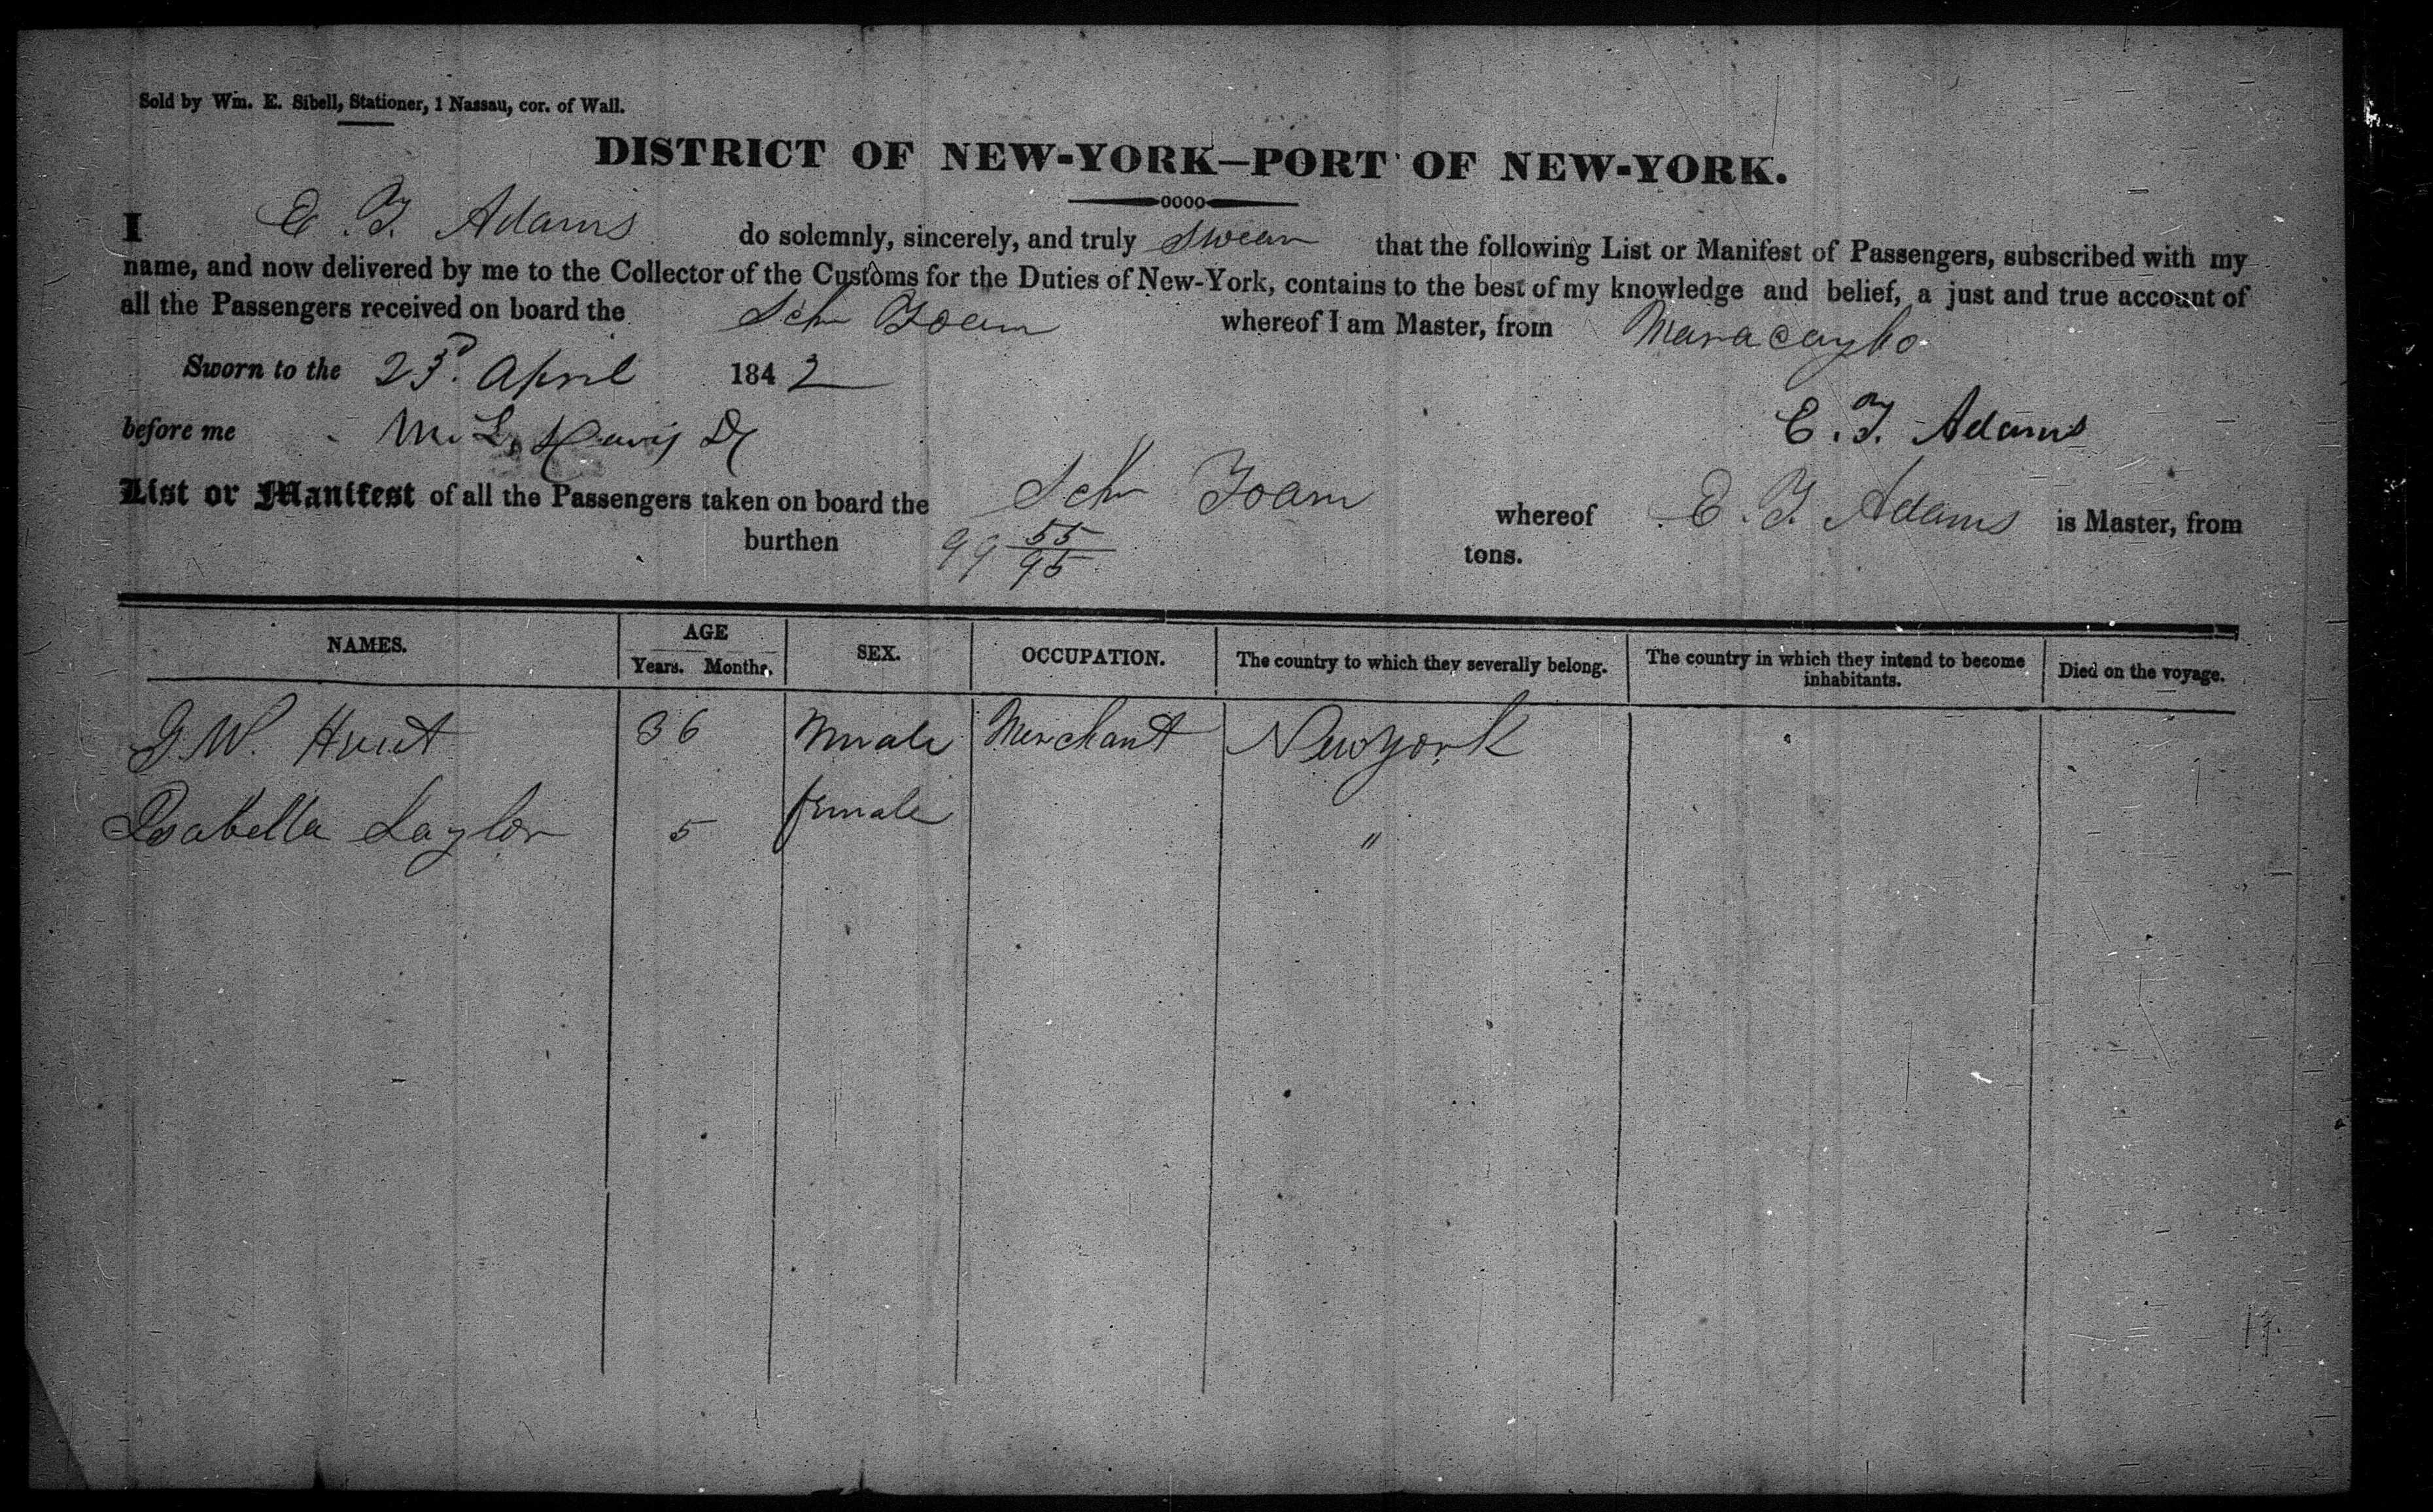 Sold by Wm. E. Sibell, Stationer, 1 Nassau, cor. of Wall.
DISTRICT OF NEW-YORK—PORT OF NEW-YORK.
I E. T. Adams do solemnly, sincerely, and truly Swear that the following List or Manifest of Passengers, subscribed with my
name, and now delivered by me to the Collector of the Customs for the Duties of New-York, contains to the best of my knowledge and belief, a just and true account of
all the Passengers received on board the Schr Foam whereof I am Master, from Maracaybo
Sworn to the 23d. April 1842
before me M. L. Davis E. T. Adams
List or Manifest of all the Passengers taken on board the Schr Foam whereof E. T. Adams is Master, from
burthen 99 55/95 tons.
NAMES. AGE Years. Months. SEX. OCCUPATION. The country to which they severally belong. The country in which they intend to become inhabitants. Died on the voyage.
G. W. Hunt 36 Male Merchant New york
Isabella Taylor 5 female "